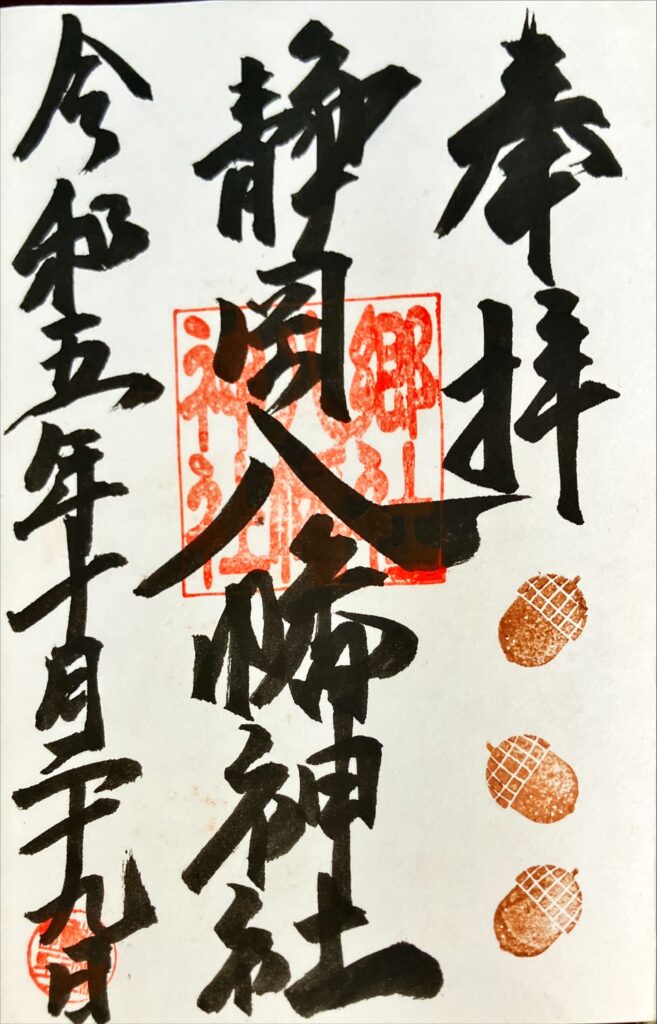 奉拝
静岡八幡神社
郷社
八幡
神社
令和五年十月二十九日